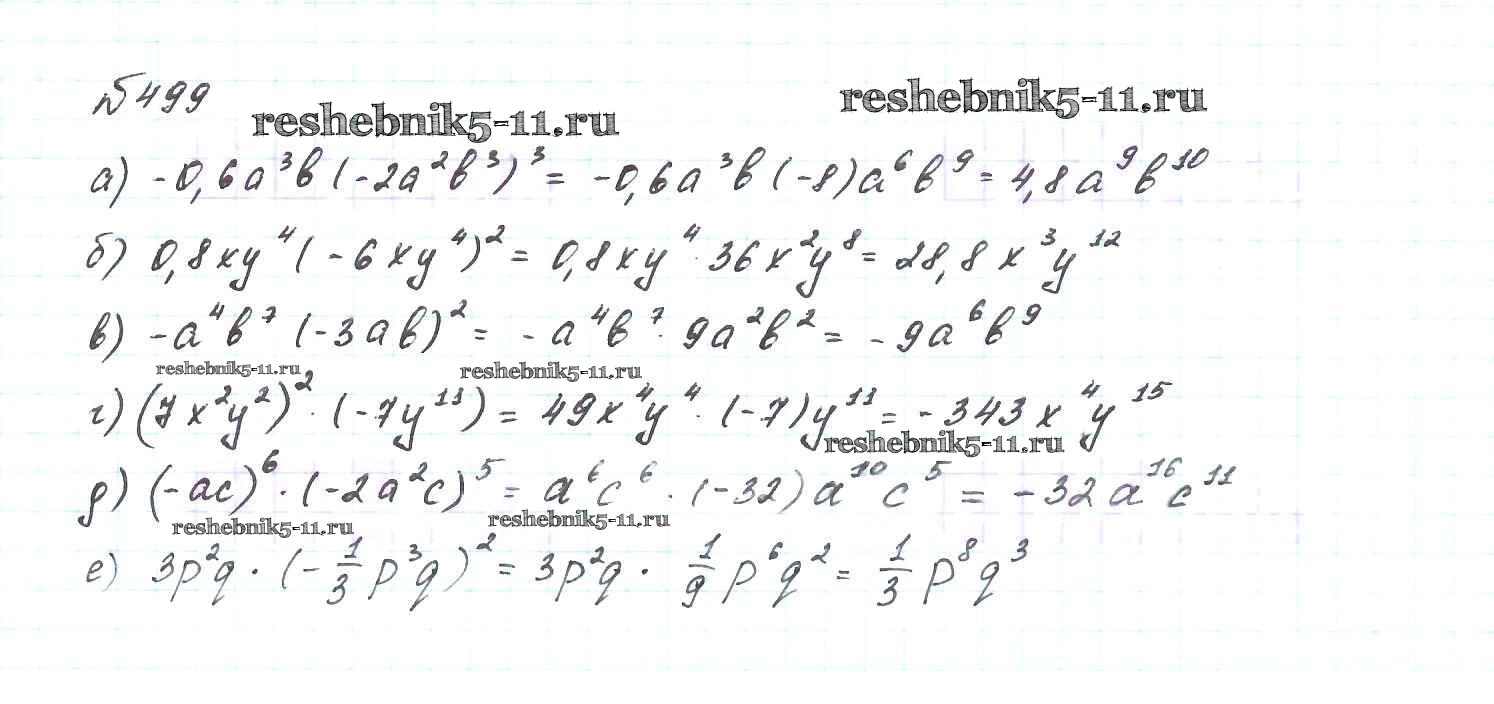 №499
reshebnik5-11.ru
reshebnik5-11.ru
а) -0,6a³b(-2a²b³)³ = -0,6a³b(-8)a⁶b⁹ = 4,8a⁹b¹⁰
б) 0,8xy⁴(-6xy⁴)² = 0,8xy⁴·36x²y⁸ = 28,8x³y¹²
в) -a⁴b⁷(-3ab)² = -a⁴b⁷·9a²b² = -9a⁶b⁹
reshebnik5-11.ru
reshebnik5-11.ru
г) (7x²y²)²·(-7y¹¹) = 49x⁴y⁴·(-7)y¹¹ = -343x⁴y¹⁵
reshebnik5-11.ru
д) (-ac)⁶·(-2a²c)⁵ = a⁶c⁶·(-32)a¹⁰c⁵ = -32a¹⁶c¹¹
reshebnik5-11.ru
reshebnik5-11.ru
е) 3p²q·(-1/3p³q)² = 3p²q·1/9p⁶q² = 1/3p⁸q³